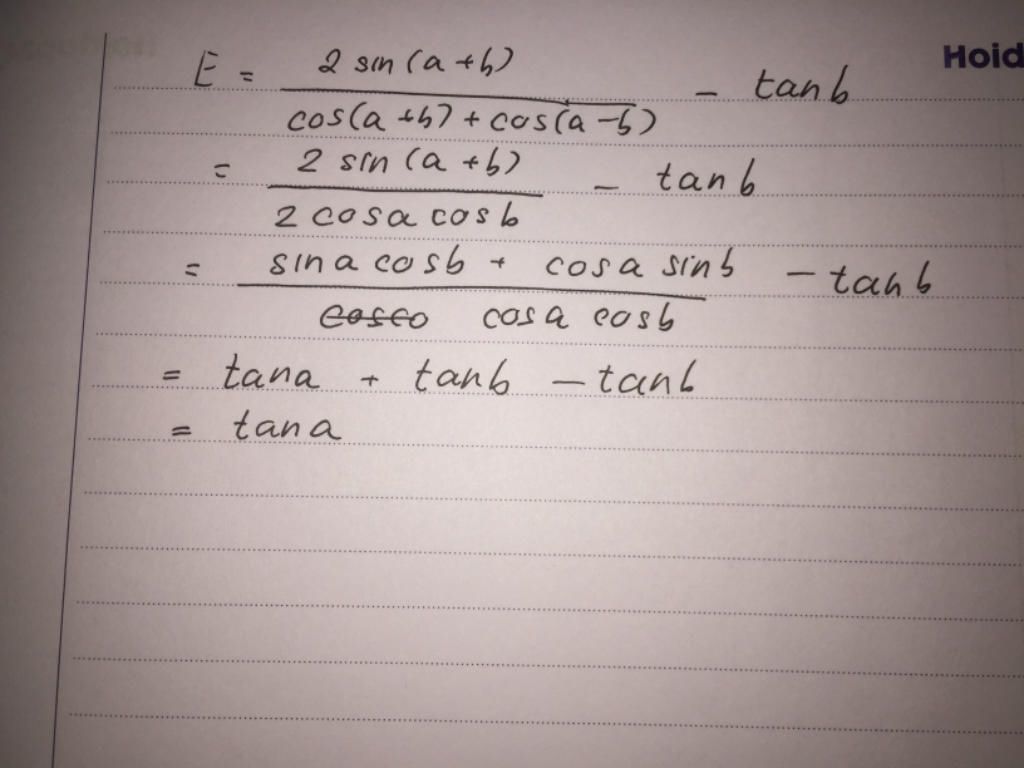 Hoid
E = 2 sin (a+b) / cos(a+b) + cos(a-b) - tan b
= 2 sin (a+b) / 2 cos a cos b - tan b
= sin a cos b + cos a sin b / cos a cos b - tan b
= tan a + tan b - tan b
= tan a